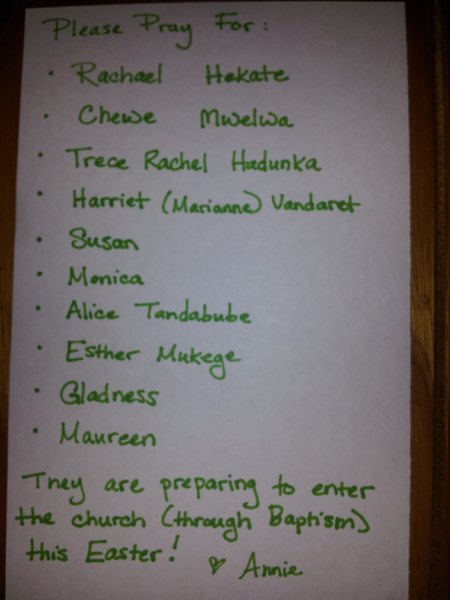 Please Pray For:
• Rachael Hekate
• Chewe Mwelwa
• Trece Rachel Hadunka
• Harriet (Marianne) Vandaret
• Susan
• Monica
• Alice Tandabube
• Esther Mukege
• Gladness
• Maureen
They are preparing to enter
the church (through Baptism)
this Easter! ♡ Annie